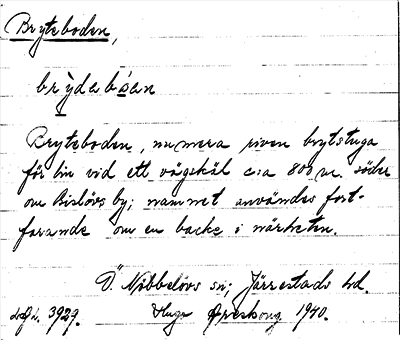 Bryteboden,
brỳdabóan
Bryteboden, numera riven brytstuga
för lin vid ett vägskäl c:a 800 m. söder
om Bislövs by; namnet användes fort-
farande om en backe i närheten.
Ö. Nöbbelövs sn; Järrestads hd.
3929. Hugo Areskoug 1940.